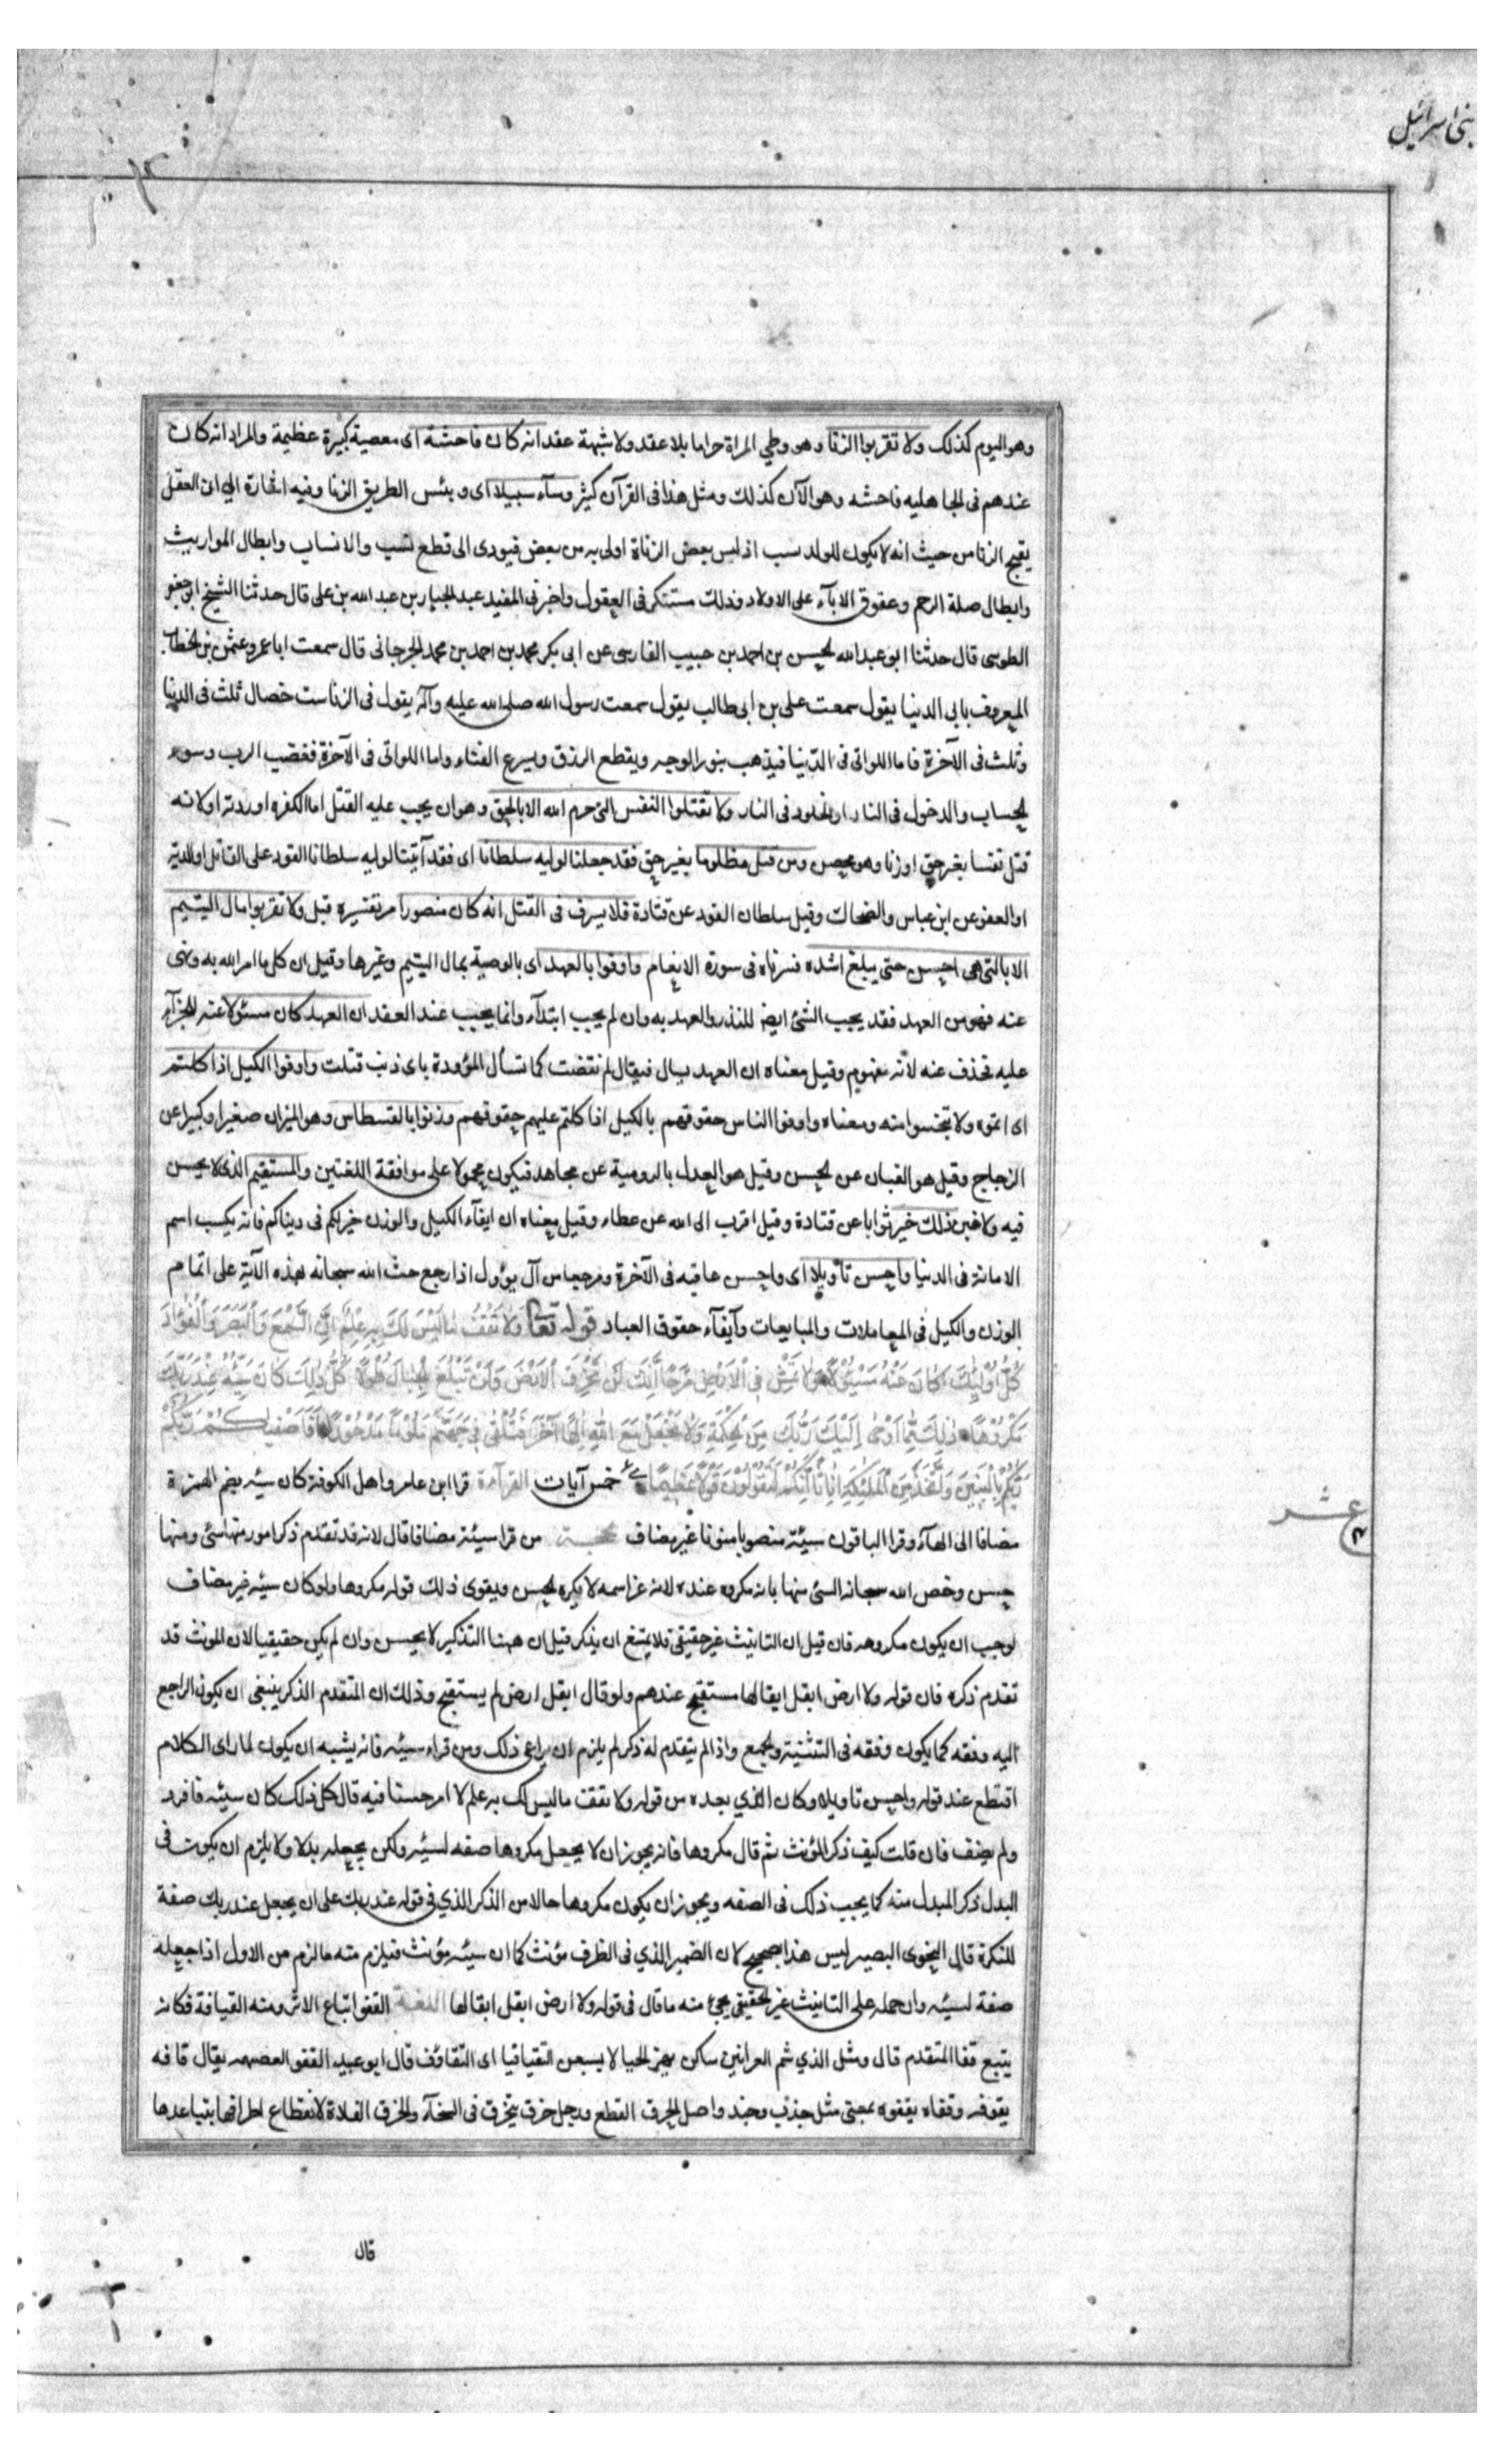 بنی اسرائیل
وهو اليوم كذلك ولا تقربوا الزنا وهو وطي المراة حراما بلا عقد ولا شبهة عقد انه كان فاحشة اى معصية كبيرة عظيمة والمراد انه كان
عندهم فى الجاهليه فاحشه وهو الآن كذلك ومثل هذا فى القرآن كثير وسآء سبيلا اى وبئس الطريق الزنا وفيه اشارة الى ان العقل
يقبح الزنا من حيث انه لا يكون للولد سب اذ ليس بعض الزناة اولى به من بعض فيودى الى قطع لنسب والانساب وابطال المواريث
وابطال صلة الرحم وعقوق الابآء على الاولاد وذلك مستنكر فى العقول واخبرنى المفيد عبد الجبار بن عبد الله بن على قال حدثنا الشيخ ابو جعفر
الطوسى قال حدثنا ابو عبد الله لحسن بن احمد بن حبيب الفارسى عن ابى بكر محمد بن احمد بن محمد الجرجانى قال سمعت ابا عمرو عثمن بن لخطاب
المعروف بابى الدنيا يقول سمعت على بن ابى طالب يقول سمعت رسول الله صلى الله عليه وآله يقول فى الزنا ست خصال ثلث فى الدنيا
وثلث فى الآخرة فاما اللواتى فى الدنيا فيذهب بنور الوجه ويقطع الرزق ويسرع الفناء واما اللواتى فى الآخرة فغضب الرب وسوء
لحساب والدخول فى النار او لخلود فى النار ولا تقتلوا النفس التى حرم الله الا بالحق وهو ان يجب عليه القتل اما لكفره او ردته او لانه
قتل نفسا بغير حق او زنا وهو محصن ومن قتل مظلوما بغير حق فقد جعلنا لوليه سلطانا اى فقد آتينا لوليه سلطانا القود على القاتل او الدية
او العفو عن ابن عباس والضحاك وقيل سلطان القود عن قتادة فلا يسرف فى القتل انه كان منصورا مر تفسيره قبل ولا تقربوا مال اليتيم
الا بالتى هى احسن حتى يبلغ اشده فسرناه فى سورة الانعام واوفوا بالعهد اى بالوصية بمال اليتيم وغيرها وقيل ان كل ما امر الله به ونهى
عنه فهو من العهد فقد يجب الشئ ايضا للنذر والعهد به وان لم يجب ابتدآء وانما يجب عند العقد ان العهد كان مسئولا عنه للجزآء
عليه فحذف عنه لانه مفهوم وقيل معناه ان العهد يسال فيقال لم نقضت كما تسأل المؤودة باى ذنب قتلت واوفوا الكيل اذا كلتم
اى اتموه ولا تبخسوا منه ومعناه واوفوا الناس حقوقهم بالكيل اذا كلتم عليهم حقوقهم وزنوا بالقسطاس وهو الميزان صغيرا وكبيرا عن
الزجاج وقيل هو القبان عن لحسن وقيل هو العدل بالرومية عن مجاهد فيكون محمولا على موافقة اللغتين والمستقيم الذى لا بحس
فيه ولا غبن ذلك خير ثوابا عن قتادة وقيل اقرب الى الله عن عطاء وقيل معناه ان ايفآء الكيل والوزن خير لكم فى دنياكم فانه يكسب اسم
الامانة فى الدنيا واحسن تأويلا اى واحسن عاقبه فى الآخرة ومرجعا من آل يؤول اذا رجع حث الله سبحانه بهذه الآية على اتمام
الوزن والكيل فى المعاملات والمبايعات وآيفآء حقوق العباد قوله تعالى وَلا تَقْفُ مَا لَيْسَ لَكَ بِهِ عِلْمٌ اِنَّ السَّمْعَ وَالْبَصَرَ وَالْفُؤادَ
كُلُّ اُولئِكَ كانَ عَنْهُ مَسْئُولًا وَلا تَمْشِ فِى الْاَرْضِ مَرَحاً اِنَّكَ لَنْ تَخْرِقَ الْاَرْضَ وَلَنْ تَبْلُغَ الْجِبالَ طُولًا كُلُّ ذلِكَ كانَ سَيِّئُهُ عِنْدَ رَبِّكَ
مَكْرُوهاً ذلِكَ مِمَّا اَوْحى اِلَيْكَ رَبُّكَ مِنَ الْحِكْمَةِ وَلا تَجْعَلْ مَعَ اللهِ اِلهاً آخَرَ فَتُلْقى فِى جَهَنَّمَ مَلُوماً مَدْحُوراً اَفَاَصْفيكُمْ رَبُّكُمْ
رَبُّكُمْ بِالْبَنِينَ وَاتَّخَذَ مِنَ الْمَلئِكَةِ اِناثاً اِنَّكُمْ لَتَقُولُونَ قَوْلًا عَظِيماً خمس آيات القرآءة قرا ابن عامر واهل الكوفة كان سيئه بضم الهمزة
مضافا الى الهآء وقرا الباقون سيئة منصوبا منونا غير مضاف الحجة من قرا سيئه مضافا قال لانه قد تقدم ذكر امور منها سئ ومنها
حسن وخص الله سبحانه السئ منها بانه مكروه عنده لانه عز اسمه لا يكره لحسن ويقوى ذلك قوله مكروها ولو كان سيئه غير مضاف
لوجب ان يكون مكروهه فان قيل ان التانيث غير حقيقى فلا يمتنع ان يذكر قيل ان ههنا التذكير لا يحسن وان لم يكن حقيقيا لان المونث قد
تقدم ذكره فان قوله ولا ارض ابقل ابقالها مستقبح عندهم ولو قال ابقل ارض لم يستقبح وذلك ان المتقدم الذكر ينبغى ان يكون الراجع
اليه وفقه كما يكون وفقه فى التثنية ولجمع واذا لم يتقدم له ذكر لم يلزم ان يراعى ذلك ومن قراء سيئه فانه يشبه ان يكون لما راى الكلام
انقطع عند قوله واحسن تاويلا وكان الذي بعده من قوله ولا تقف ما ليس لك به علم لا امر حسنا فيه قال كل ذلك كان سيئه فافرد
ولم يضف فان قلت كيف ذكر المؤنث ثم قال مكروها فانه يجوز ان لا يجعل مكروها صفه لسيئه ولكن يجعله بدلا ولا يلزم ان يكون فى
البدل ذكر المبدل منه كما يجب ذلك فى الصفه ويجوز ان يكون مكروها حالا من الذكر الذي فى قوله عند ربك على ان يجعل عند ربك صفة
للنكرة قال النحوى البصير ليس هذا بصحيح لان الضمير الذي فى الظرف مؤنث كما ان سيئه مؤنث فيلزم منه ما لزم من الاول اذا جعله
صفة لسيئه وان حمله على التانيث غير لحقيقى يجئ منه ما قال فى قوله ولا ارض ابقل ابقالها اللغة القفو اتباع الاثر ومنه القيافة فكانه
يتبع قفا المتقدم قال ومثل الذي شم العرانين ساكن بهن لحيا لا يسعن التقيا قيا اى التقاذف قال ابو عبيد القفو العضيهه يقال قافه
يقوفه وقفاه يقفوه بمعنى مثل جذب وجبذ واصل الخرق القطع ورجل خرق يتخرق فى السخآء والخرق الفلاة لانقطاع اطرافها بتباعدها
قال
عشر